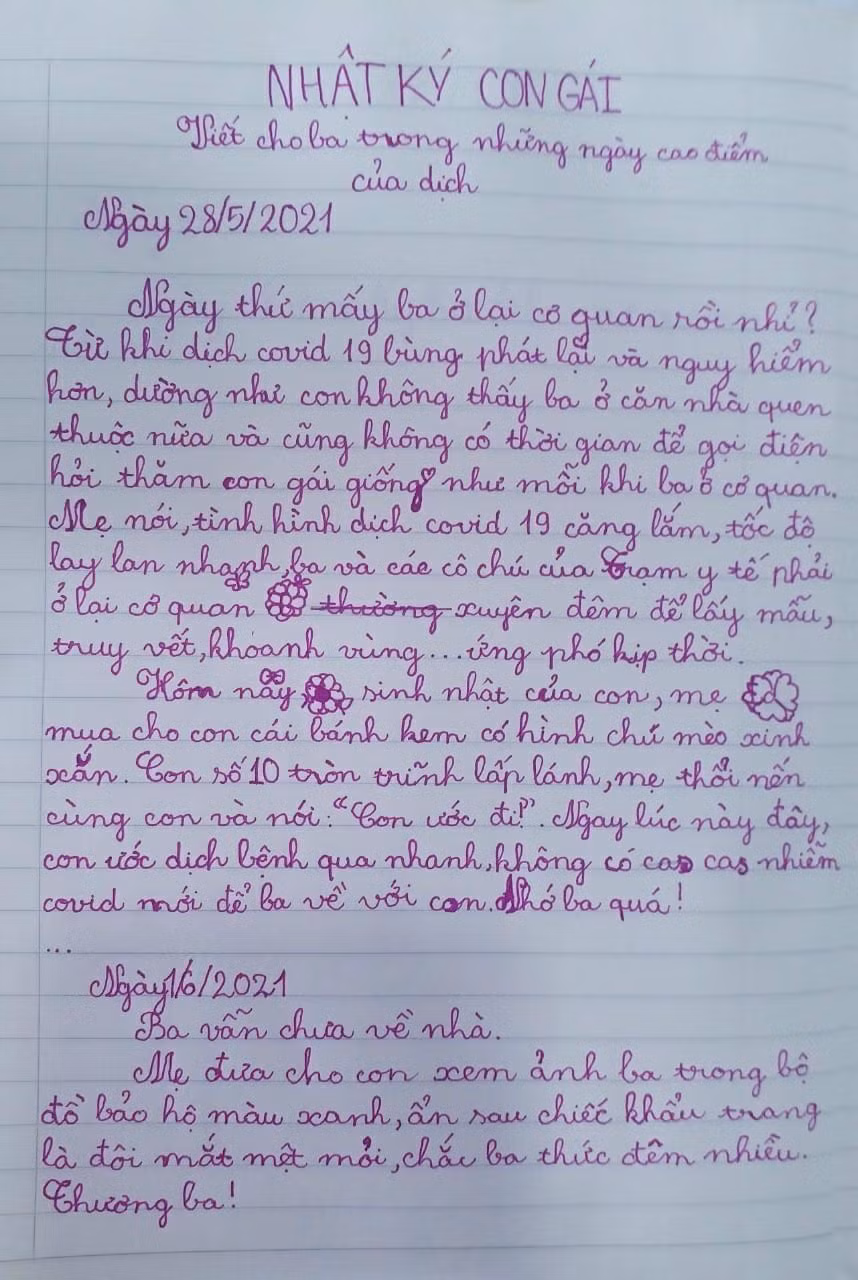 NHẬT KÝ CON GÁI
Viết cho ba trong những ngày cao điểm
của dịch
Ngày 28/5/2021
Ngày thứ mấy ba ở lại cơ quan rồi nhỉ?
Từ khi dịch covid 19 bùng phát lại và nguy hiểm
hơn, dường như con không thấy ba ở căn nhà quen
thuộc nữa và cũng không có thời gian để gọi điện
hỏi thăm con gái giống như mỗi khi ba ở cơ quan.
Mẹ nói, tình hình dịch covid 19 căng lắm, tốc độ
lay lan nhanh, ba và các cô chú của Trạm y tế phải
ở lại cơ quan thường xuyên đêm để lấy mẫu,
truy vết, khoanh vùng...ứng phó kịp thời.
Hôm nay sinh nhật của con, mẹ
mua cho con cái bánh kem có hình chú mèo xinh
xắn. Con số 10 tròn trĩnh lấp lánh, mẹ thổi nến
cùng con và nói: "Con ước đi!". Ngay lúc này đây,
con ước dịch bệnh qua nhanh, không có cas nhiễm
covid mới để ba về với con. Nhớ ba quá!
...
Ngày 1/6/2021
Ba vẫn chưa về nhà.
Mẹ đưa cho con xem ảnh ba trong bộ
đồ bảo hộ màu xanh, ẩn sau chiếc khẩu trang
là đôi mắt mệt mỏi, chắc ba thức đêm nhiều.
Thương ba!